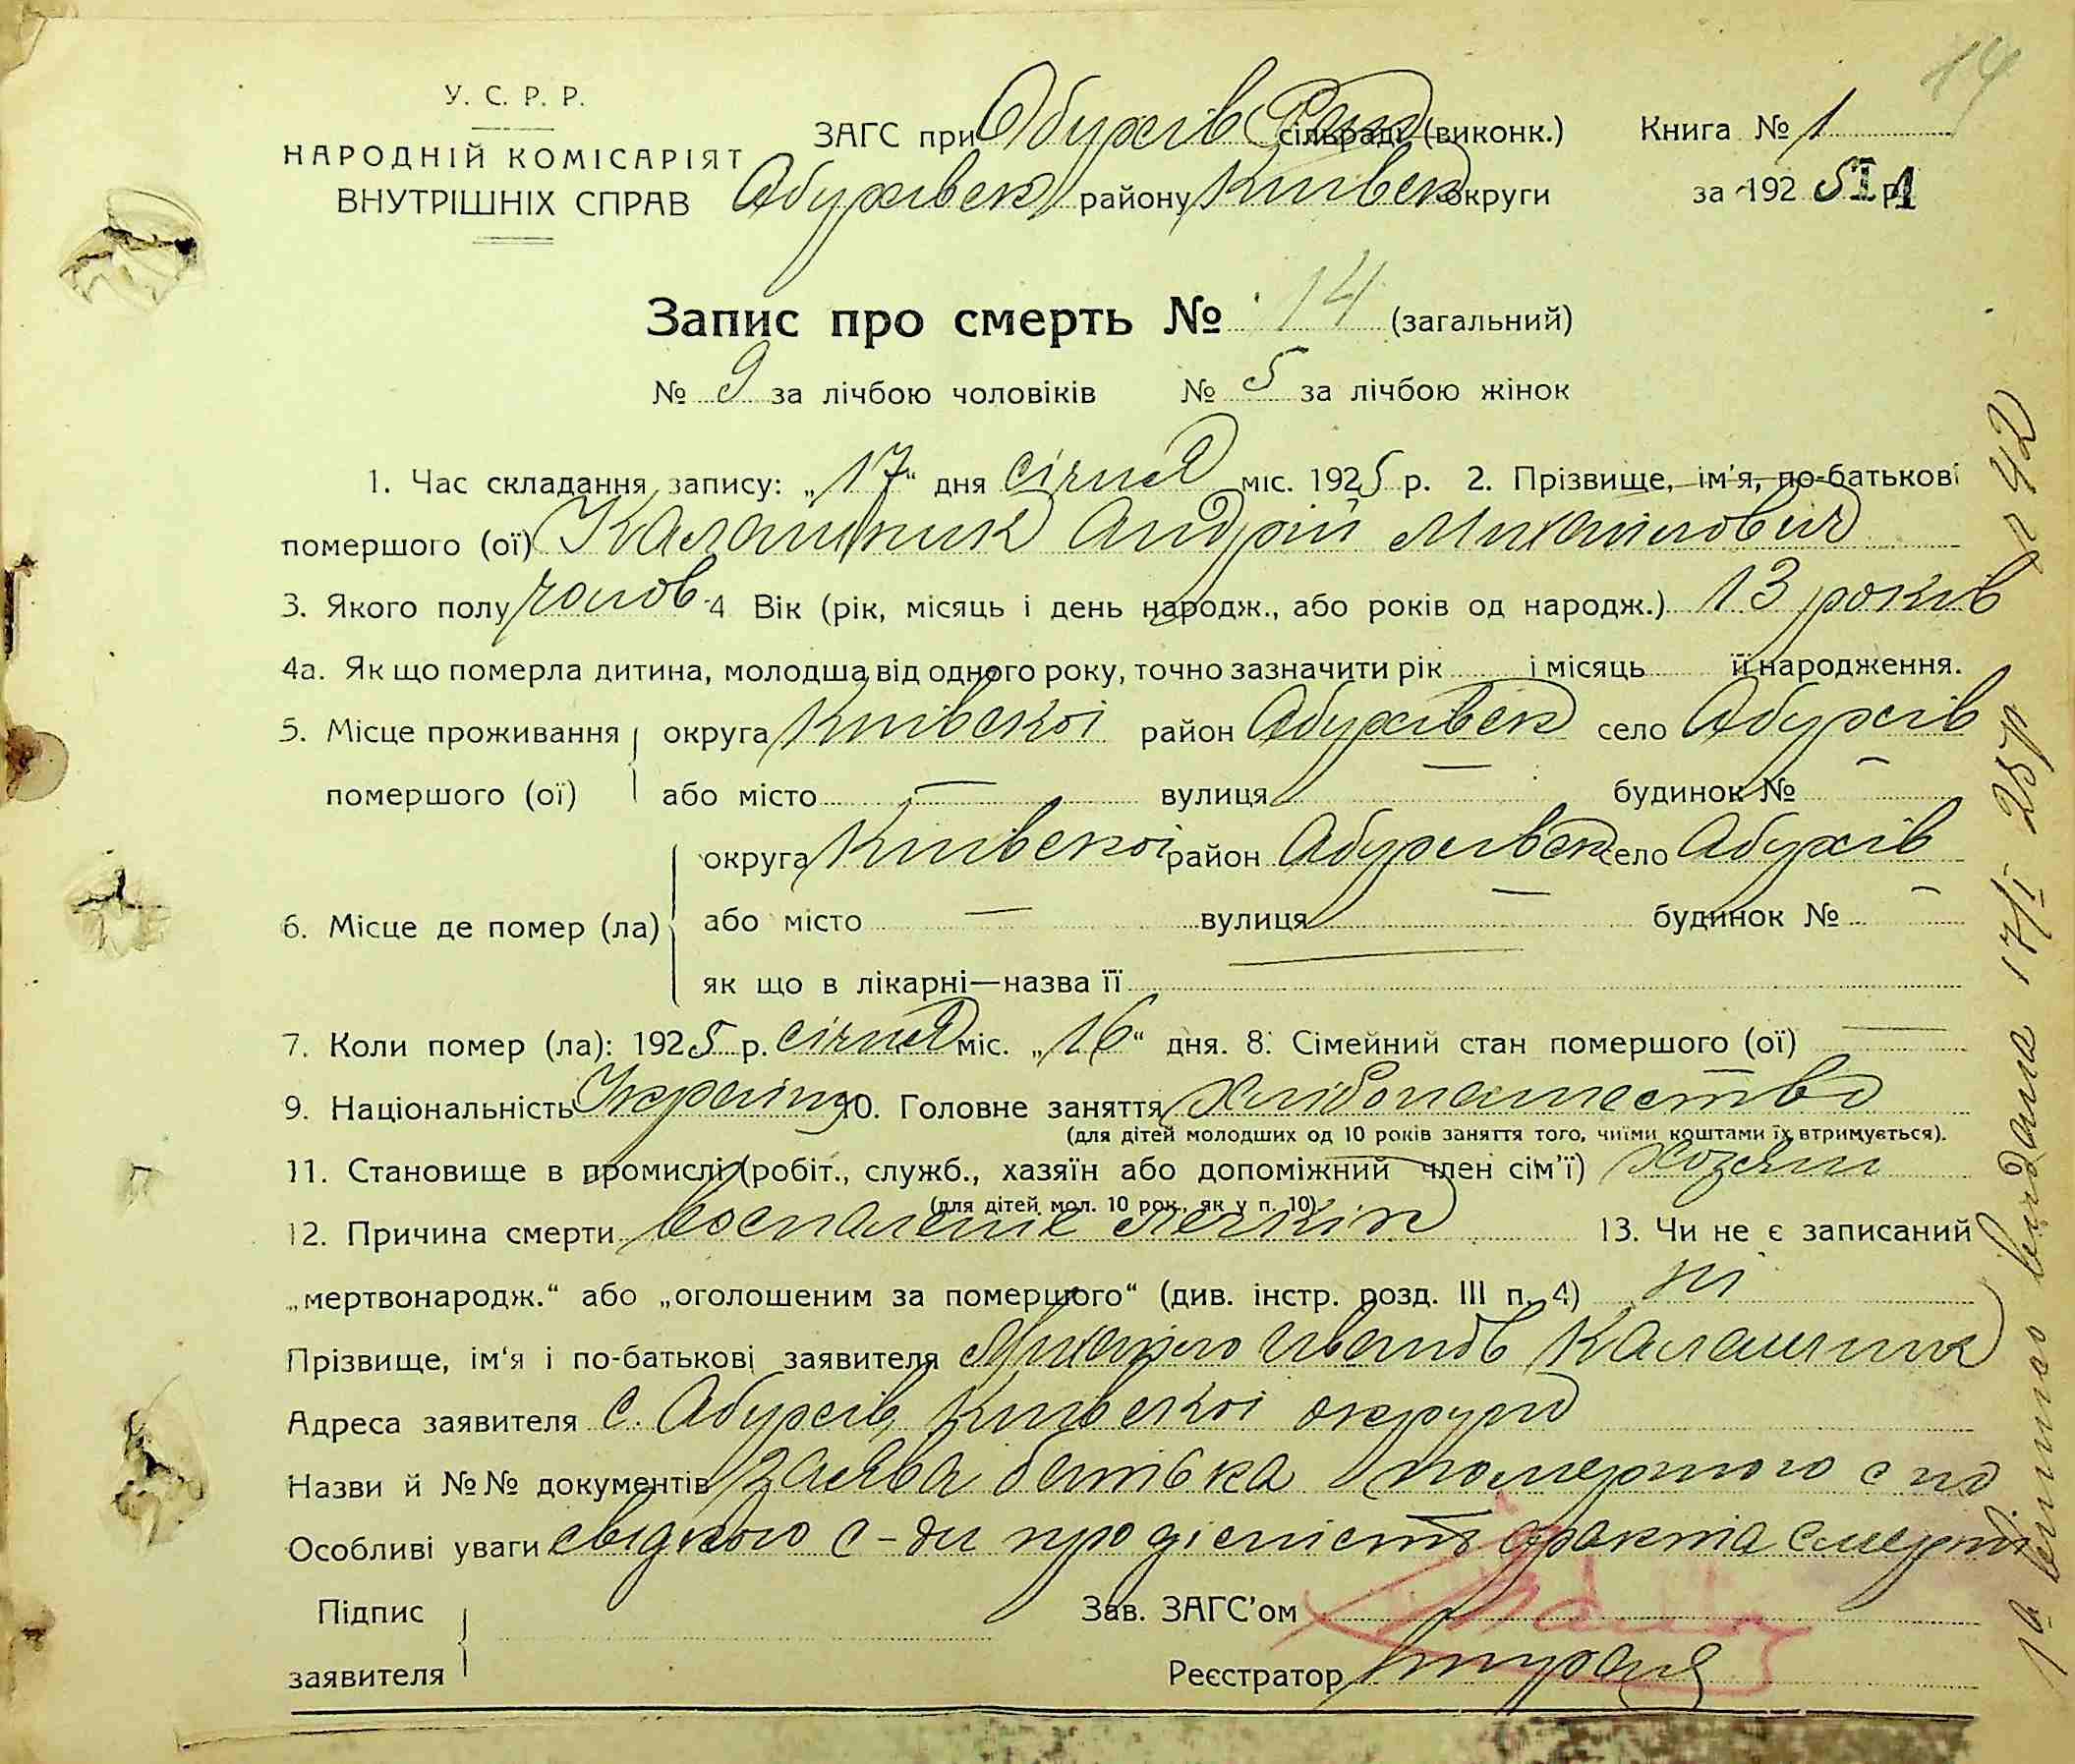 14
У. С. Р. Р.
НАРОДНІЙ КОМІСАРІЯТ
ВНУТРІШНІХ СПРАВ
ЗАГС при Обухів Рай сільраді (виконк.)
Книга № 1
Обухівськ району Київськ округи
за 192 5 р.
Запис про смерть № 14 (загальний)
№ 9 за лічбою чоловіків № 5 за лічбою жінок
1. Час складання запису: „17“ дня січня міс. 1925 р. 2. Прізвище, ім'я, по-батькові
помершого (ої) Калашник Андрій Михайлович
3. Якого полу чолов. 4 Вік (рік, місяць і день народж., або років од народж.) 13 років
4а. Як що померла дитина, молодша від одного року, точно зазначити рік і місяць її народження.
5. Місце проживання округа Київської район Обухівськ село Обухів
помершого (ої) або місто — вулиця — будинок № —
округа Київської район Обухівськ село Обухів
6. Місце де помер (ла) або місто — вулиця — будинок № —
як що в лікарні—назва її —
7. Коли помер (ла): 1925 р. січня міс. „16“ дня. 8. Сімейний стан помершого (ої) —
9. Національність Україну 10. Головне заняття Хлібопашество
(для дітей молодших од 10 років заняття того, чиїми коштами їх втримується).
11. Становище в промислі (робіт., служб., хазяїн або допоміжний член сім'ї) Хозяин
(для дітей мол. 10 рок., як у п. 10)
12. Причина смерти воспаление легких 13. Чи не є записаний
„мертвонародж.“ або „оголошеним за помершого“ (див. інстр. розд. III п. 4) ні
Прізвище, ім'я і по-батькові заявителя Михайло Іванов Калашник
Адреса заявителя с. Обухів, Київської округи
Назви й №№ документів заява батька помершого
Особливі уваги про дісність факта смерті
Підпис
заявителя
Зав. ЗАГС'ом
Реєстратор
видана 17/I 25р № 42